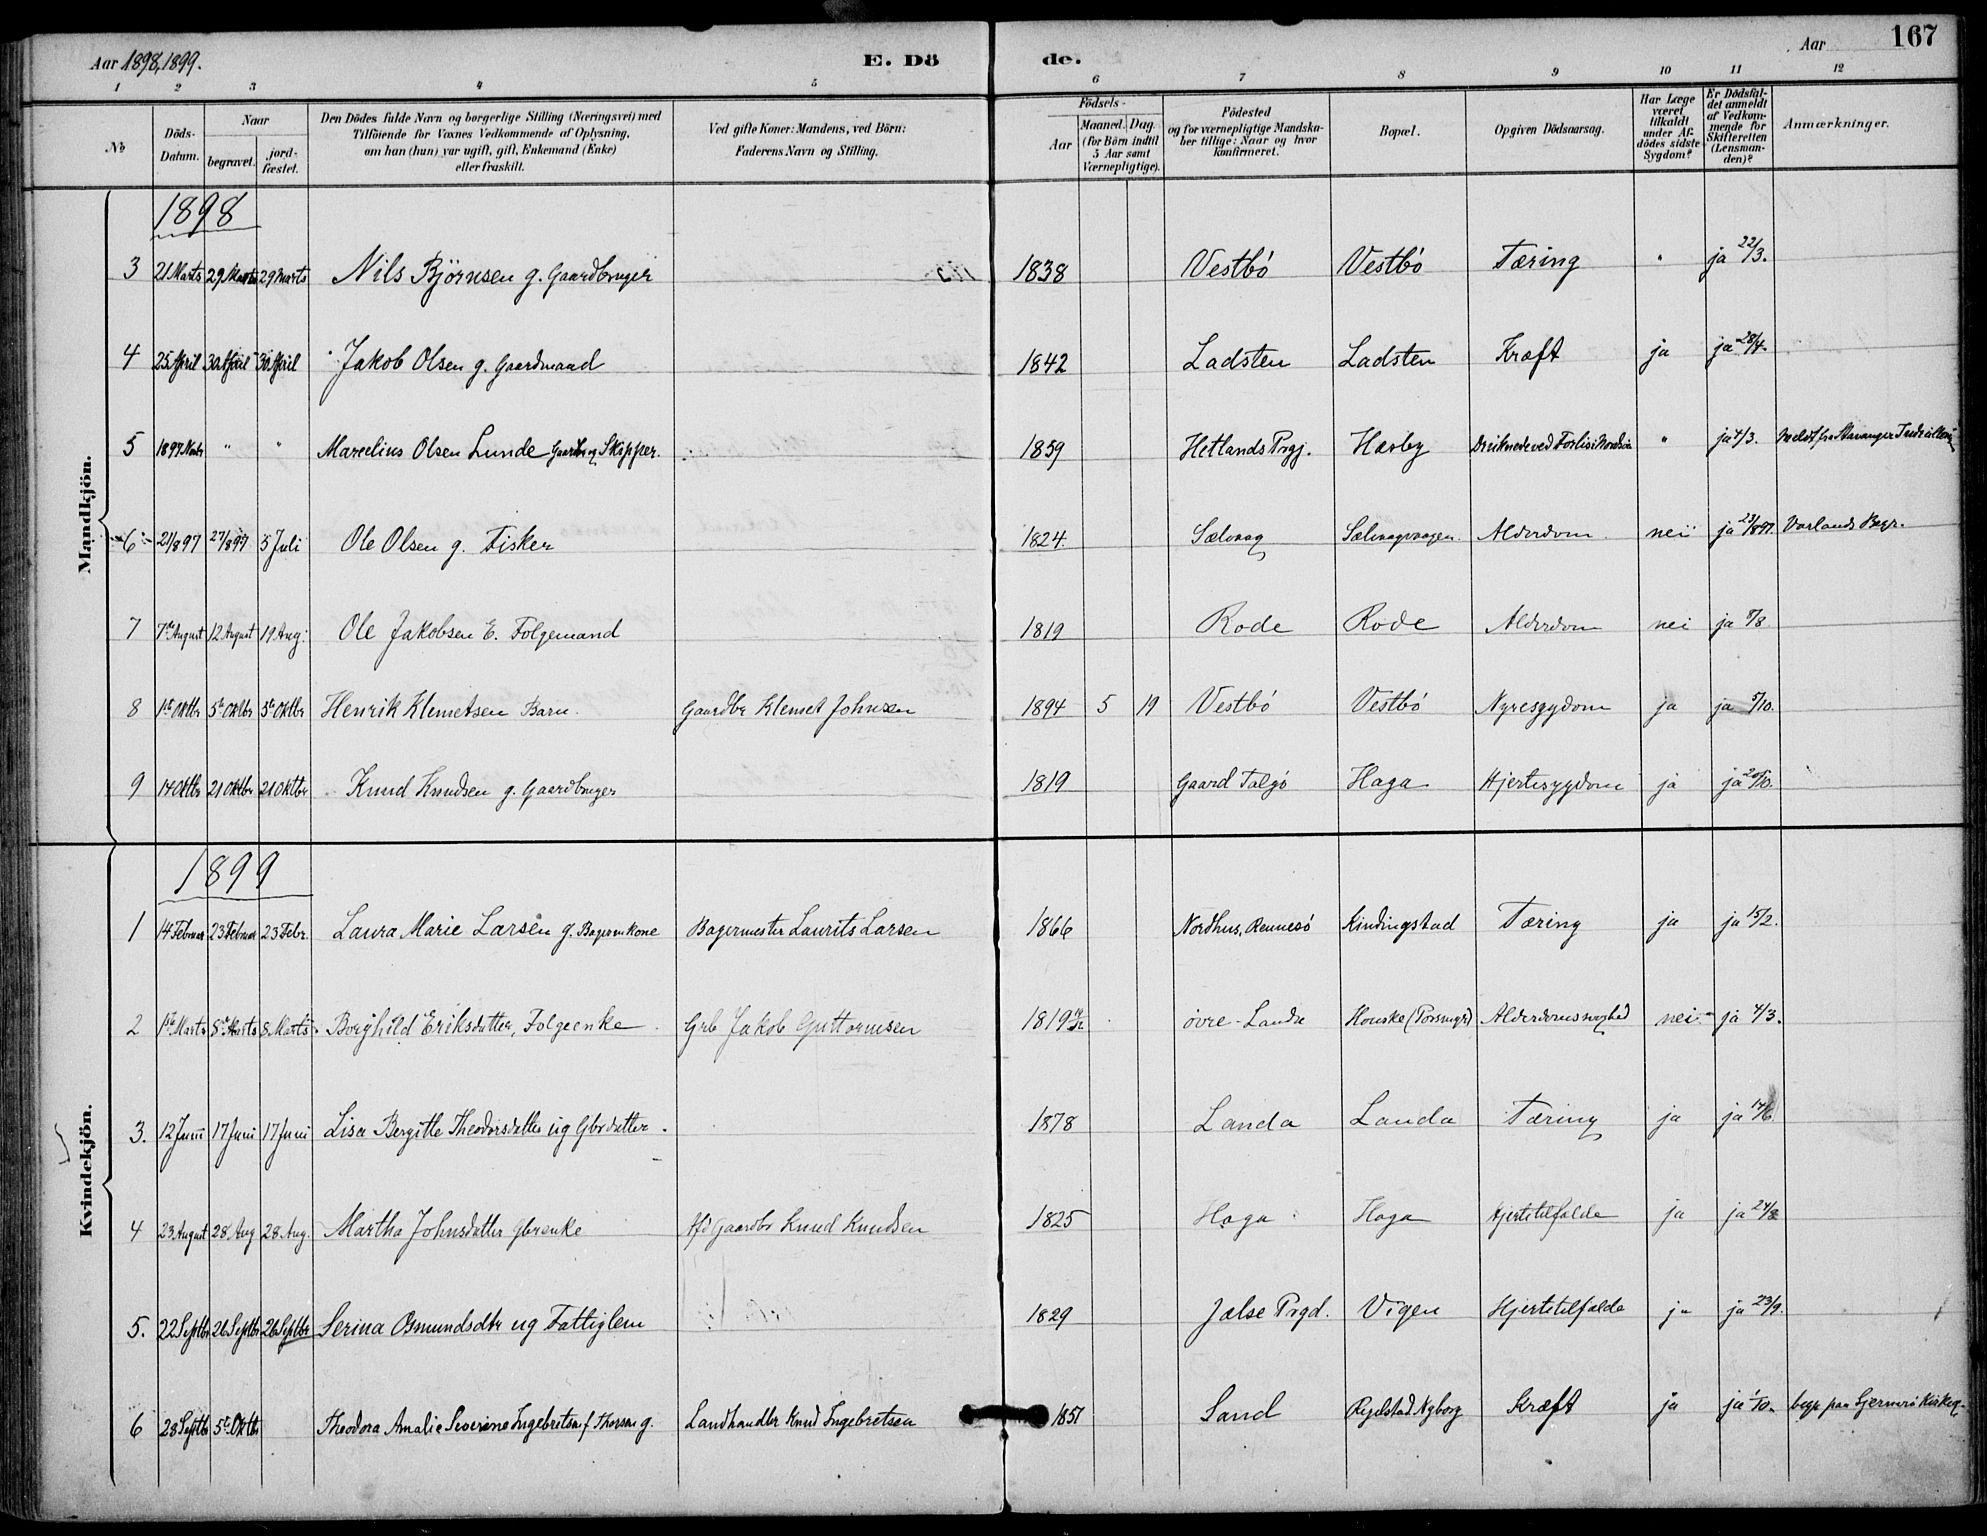 Aar 1898, 1899.
E. Dö
de.
Aar
167
1 2 3 4 5 6 7 8 9 10 11 12
No
Döds-Datum.
Naar
begravet.
jord-fæstet.
Den Dödes fulde Navn og borgerlige Stilling (Næringsvei) med
Tilföiende for Voxnes Vedkommende af Oplysning,
om han (hun) var ugift, gift, Enkemand (Enke)
eller fraskilt.
Ved gifte Koner: Mandens, ved Börn:
Faderens Navn og Stilling.
Födsels-
Aar
Maaned. Dag.
(for Börn indtil
5 Aar samt
Værnepligtige).
Födested
og for værnepligtige Mandska-
ber tillige: Naar og hvor
konfirmeret.
Bopæl.
Opgiven Dödsaarsag.
Har Læge
været
tilkaldt
under Af-
dödes sidste
Sygdom?
Er Dödsfal-
det anmeldt
af Vedkom-
mende for
Skifteretten
(Lensman-
den)?
Anmærkninger.
Mandkjön.
1898
3 21 Marts 29 Marts 29 Marts Nils Björnsen g. Gaardbruger 1838 Vestbö Vestbö Tæring " ja 22/3.
4 25 April 30 April 30 April Jakob Olsen g. Gaardmand 1842 Ladsten Ladsten Kræft ja ja 28/4.
5 1897 " " Marcelius Olsen Lunde Gaardbr og Skipper. 1859 Hetlands Prgj. Hæsby Druknede ved Forlis i Nordsöen " ja 4/3. Meldt fra Stavanger
6 21/8 97 27/8 97 5 Juli Ole Olsen g. Fisker 1824 Sælvaag Sælvaagvaagen. Alderdom. nei ja 23/8 97. Vorlands Begr.
7 7de August 12 August 19 Aug: Ole Jakobsen E. Folgemand 1819 Rode Rode Alderdom nei ja 8/8.
8 1ste Oktbr 5te Oktbr 5te Oktbr Henrik Klemetsen Barn. Gaardbr Klemet Johnsen 1894 5 19 Vestbö Vestbö Nyresygdom ja ja 5/10.
9 14 Oktbr 21 Oktbr 21 Oktbr Knud Knudsen g. Gaardbruger 1819 Gaard Talgö Haga Hjertesygdom ja ja 20/10.
Kvindekjön.
1899
1 14 Februar 23 Februar 23 Febr. Laura Marie Larsen g. Bagermkone Bagermester Laurits Larsen 1866 Nordhus, Rennesö Kindingstad Tæring ja ja 15/2.
2 1ste Marts 5te Marts 8 Marts Borghild Eriksdatter, Folgeenke Grb Jakob Guttormsen 1819 övre-Landa Houske Alderdomssvaghed nei ja 4/3.
3. 12 Juni 17 Juni 17 Juni Lisa Bergitte Theodorsdatter ug Gbrdatter. 1878 Landa Landa Tæring ja ja 14/6.
4 23 August 28 Aug 28 Aug. Martha Johnsdatter gbrenke Afd Gaardbr Knud Knudsen 1825 Haga Haga Hjertetilfælde ja ja 24/8
5. 22 Septbr 26 Septbr 26 Septbr Serina Osmundsdtr ug Fattiglem 1829 Jælse Prgd. Vigen Hjertetilfælde ja ja 23/9.
6 28 Septbr 5te Oktbr Theodora Amalie Severine Ingebretsen f. Thorsen g. Landhandler Knud Ingebretsen 1857 Sand Nyborg Kræft ja ja begr. paa Sjernerö Kirkeg.